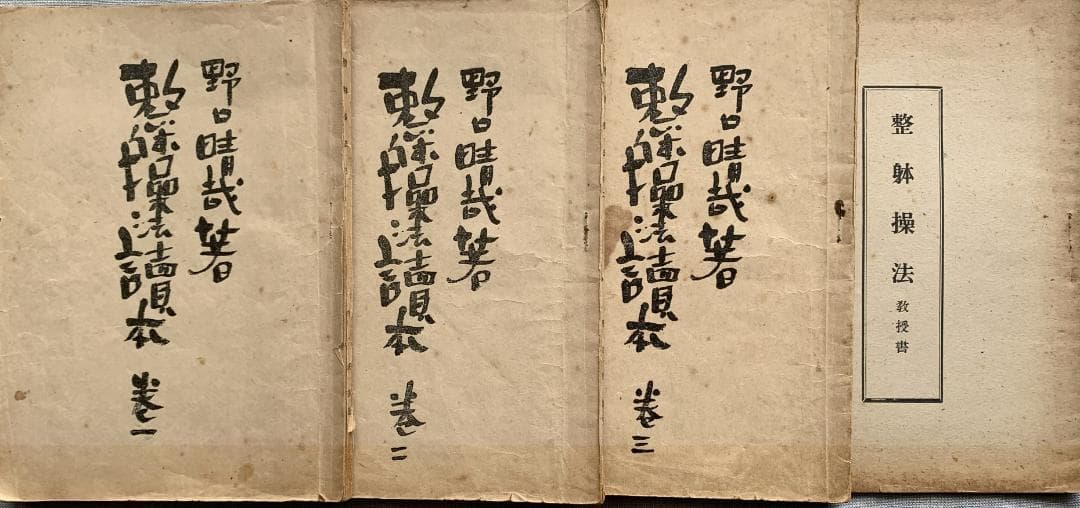 野口晴哉著
整躰操法讀本 巻一
野口晴哉著
整躰操法讀本 巻二
野口晴哉著
整躰操法讀本 巻三
整躰操法 教授書